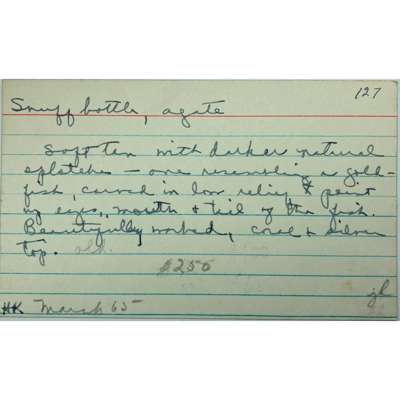 127
Snuff bottle, agate
Soft tan with darker natural
splotches — one resembling a gold-
fish, carved in low relief & paint
ing eyes, mouth & tail of the fish.
Beautifully worked, coral & silver
top. old.
$250
HK March 65